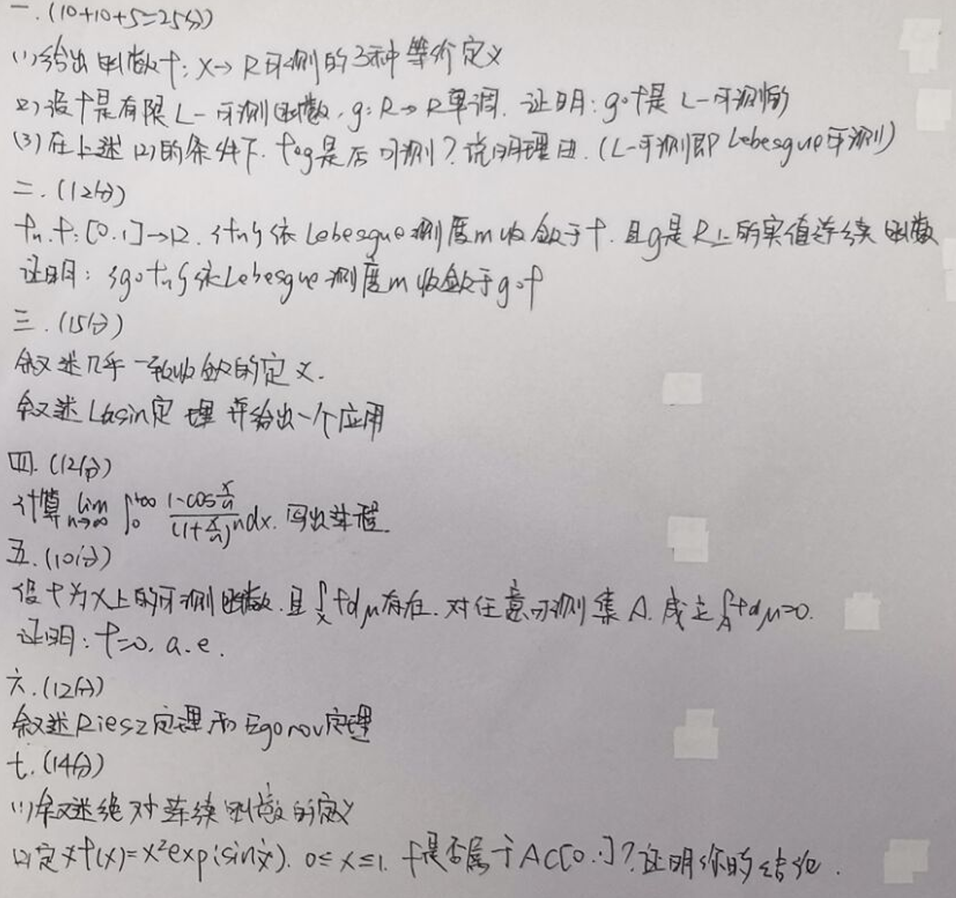 一.(10+10+5=25分)
(1)给出函数f:X→R可测的3种等价定义
(2)设f是有限L-可测函数,g:R→R单调.证明:g∘f是L-可测的
(3)在上述(2)的条件下.f∘g是否可测?说明理由.(L-可测即Lebesgue可测)
二.(12分)
fn.f:[0,1]→R.{fn}依Lebesgue测度m收敛于f.且g是R上的实值连续函数
证明:{g∘fn}依Lebesgue测度m收敛于g∘f
三.(15分)
叙述几乎一致收敛的定义.
叙述Lusin定理并给出一个应用
四.(12分)
计算 lim n→∞ ∫₀^{+∞} (1-cos x/n)/(1+x/n)^n dx.写出过程.
五.(10分)
设f为X上的可测函数.且∫_X fdμ存在.对任意可测集A.成立∫_A fdμ=0.
证明:f=0.a.e.
六.(12分)
叙述Riesz定理和Egorov定理
七.(14分)
(1)叙述绝对连续函数的定义
(2)定义f(x)=x²exp(sin 1/x).0≤x≤1.f是否属于AC[0,1]?证明你的结论.